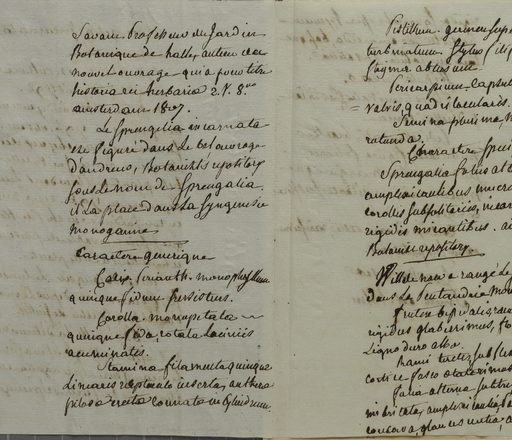 Savant professeur du Jardin
Botanique de halle, auteur de
nouvel ouvrage qui a pour titre
historia rei herbariæ 2. V. 8.vo
amsterdam 1807.
Le Sprengelia incarnata
est figuré dans le bel ouvrage
d'andrews, Botanist's repository
sous le nom de Sprengalia
il la place dans la Syngenesie
monogamie
Caractere generique
Calix. Perianth. monophyllum
quinquefidum persistens.
Corolla. monopetala
quinquefida, rotata laciniis
acuminatis.
Stamina filamenta quinque
linearia receptaculo inserta, anthera
pilosa erecta connata in Cylindrum.
Pistillum. germen supe
turbinatum. Stylus fili
Stigma obtusum.
Pericarpium. Capsul
valvis, quadri locularis.
Semina plurima,
rotunda.
Caractere speci
Sprengalia foliis alt
amplexicaulibus mucro
corollis
rigidis
Botanist repository.
Willdenow a rangé le
dans la Pentandrie mon
frutex bipedalis, ram
rigidus glaberrimus,
Ligno duro albo.
Rami teretes
cortice fusco
folia alterna
imbricata, amplexicaulia,
concava, glaucescentia